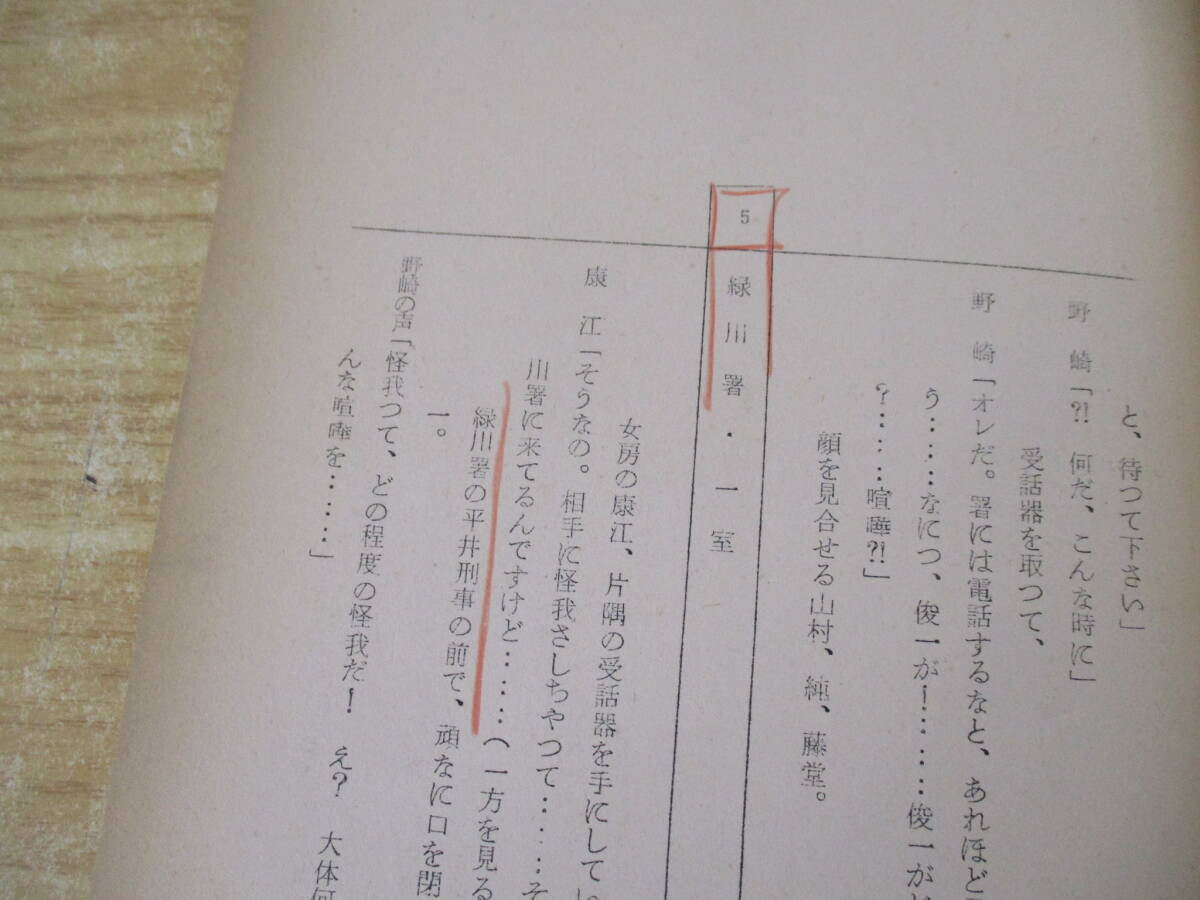 と、待つて下さい」
野崎「⁈ 何だ、こんな時に」
受話器を取つて、
野崎「オレだ。署には電話するなと、あれほど
う……なにつ、俊一が!……俊一が
?……喧嘩⁈」
顔を見合せる山村、純、藤堂。
5 緑川署・一室
女房の康江、片隅の受話器を手にして
康江「そうなの。相手に怪我さしちやつて……そ
川署に来てるんですけど……(一方を見る
緑川署の平井刑事の前で、頑なに口を閉
一。
野崎の声「怪我つて、どの程度の怪我だ! え? 大体何
んな喧嘩を……」